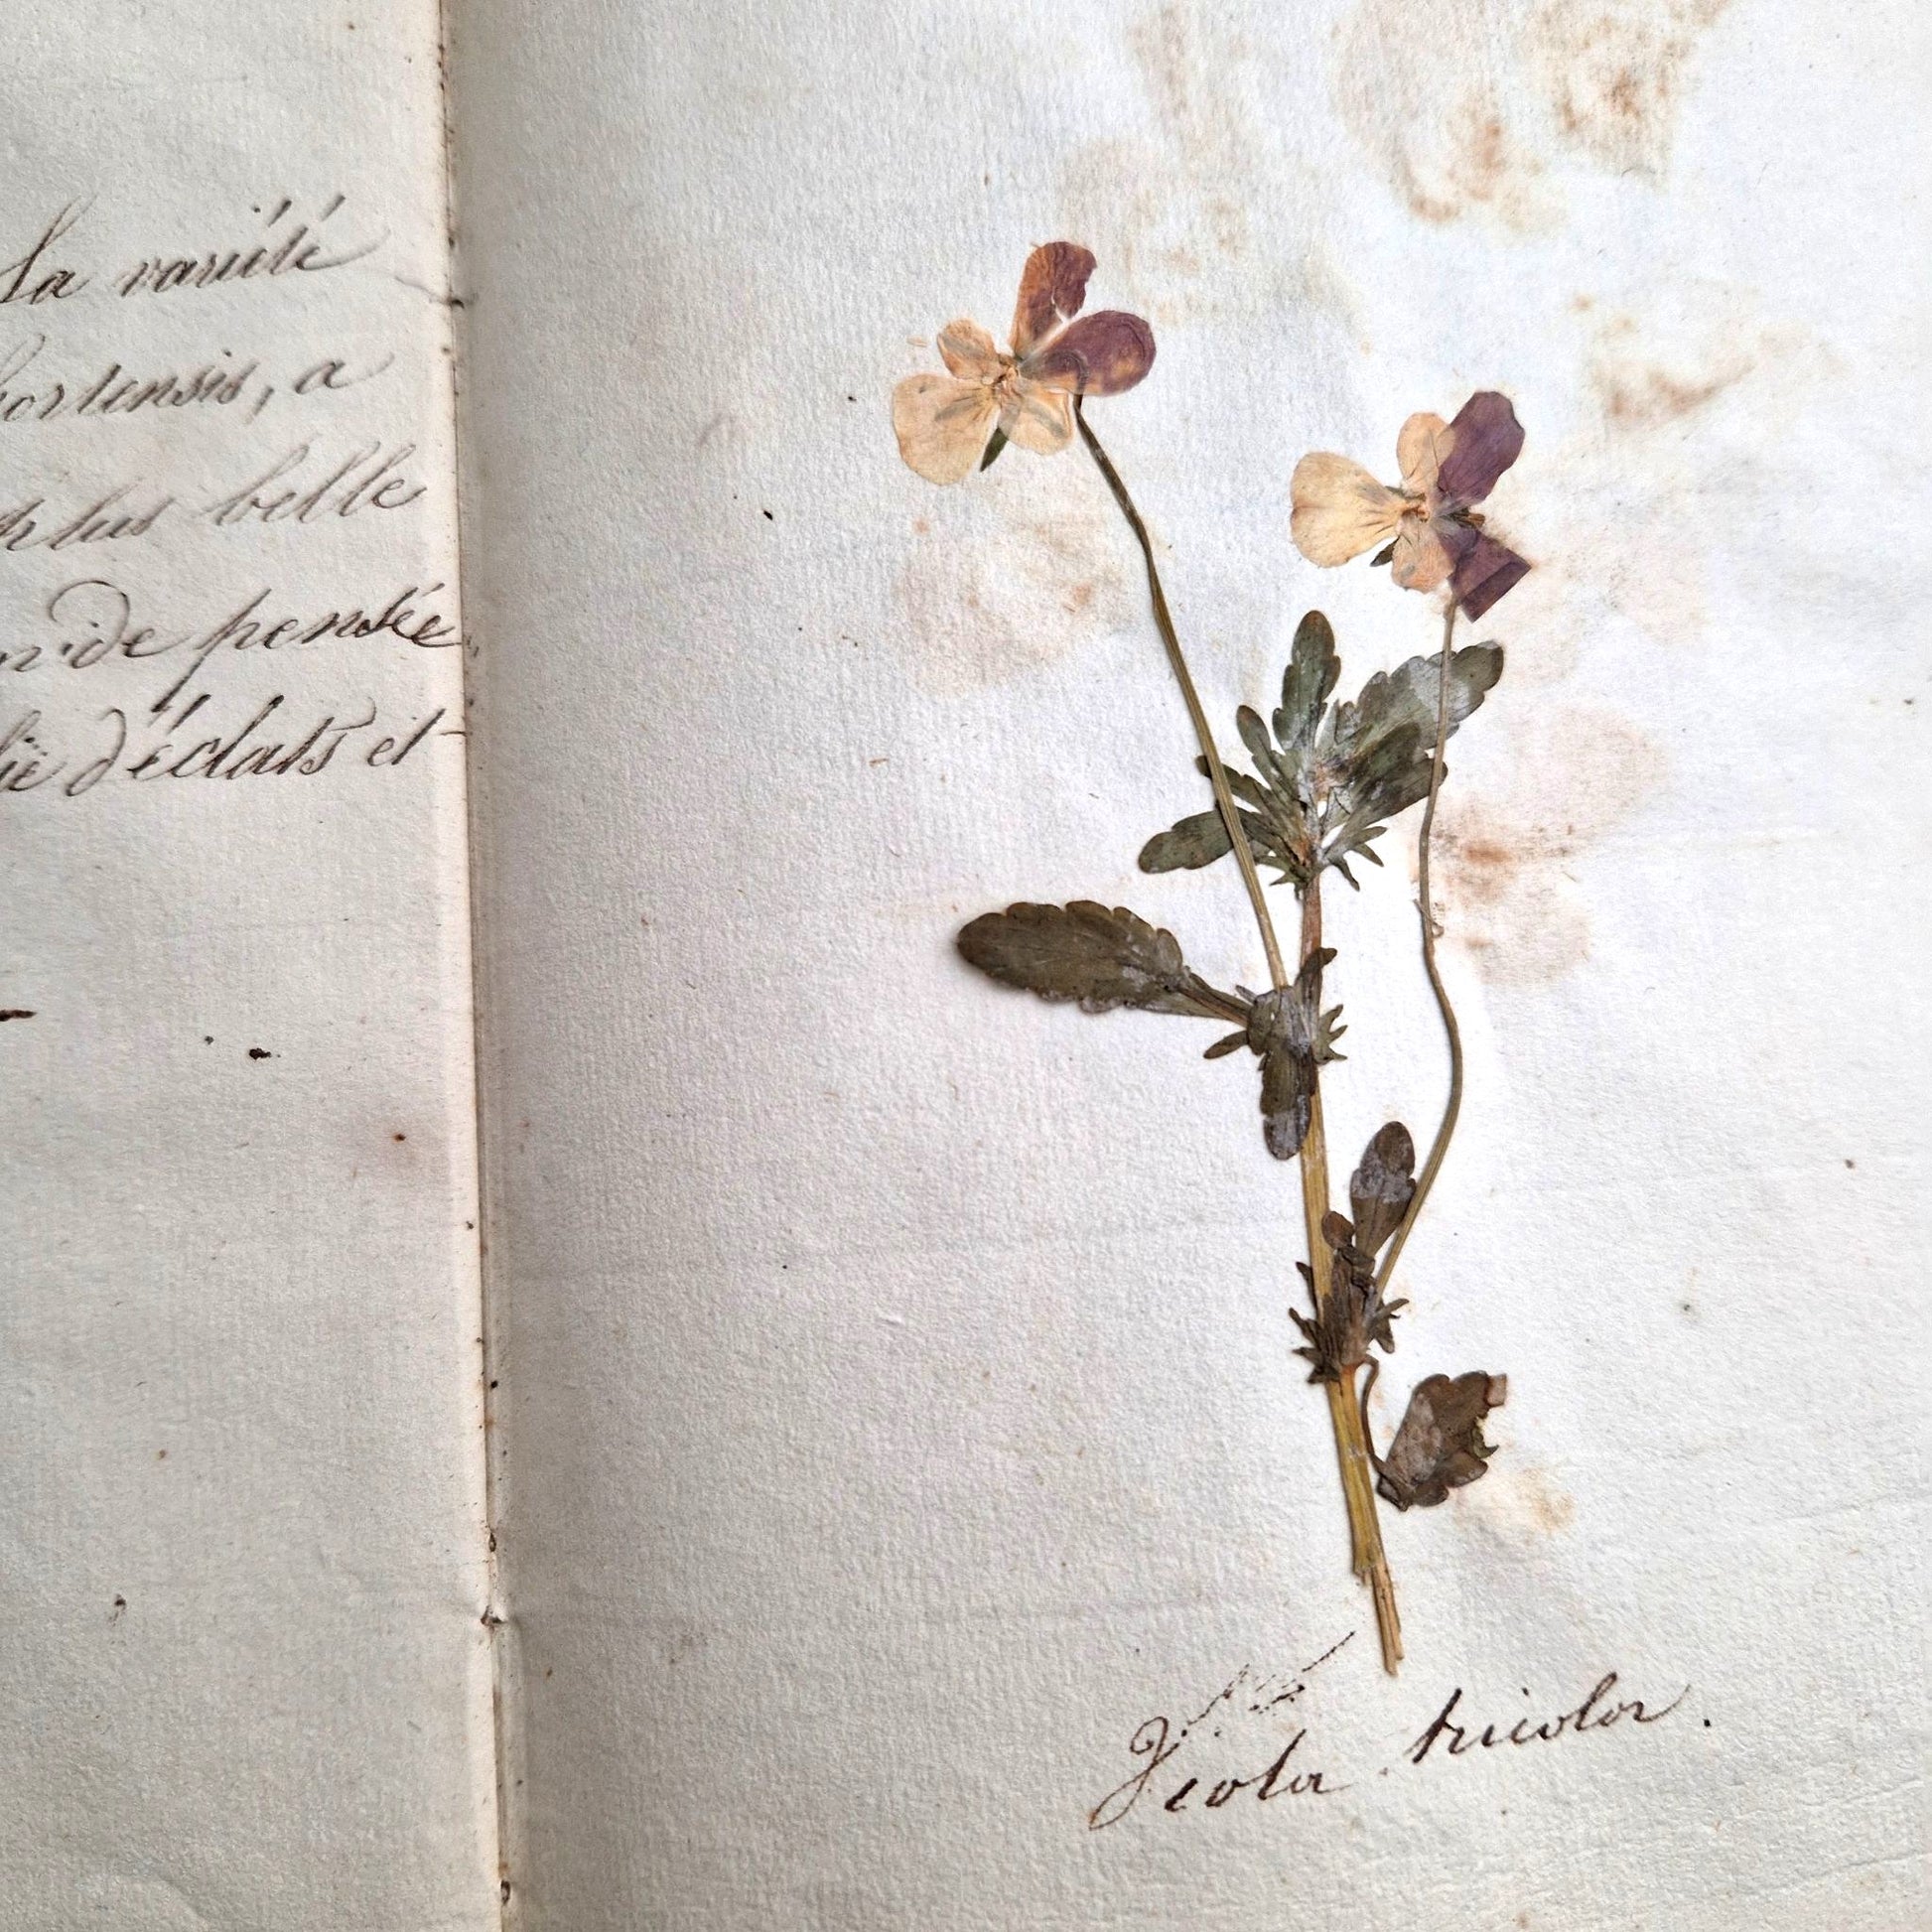 la variété
hortensis, a
plus belle
de pensée
d'éclats et
Viola tricolor.